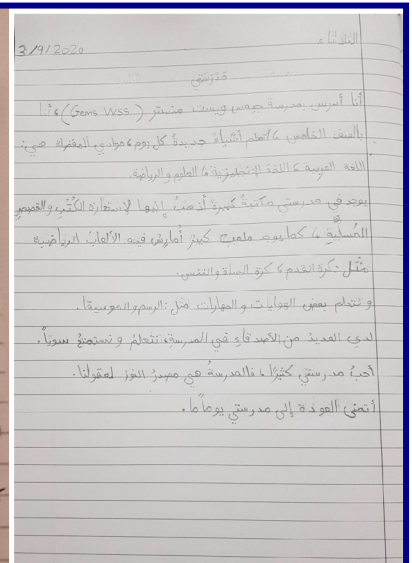 الثلاثاء
3/9/2020
مدرستي
أنا أدرس بمدرسة جيمس ويست منستر (Gems WSS) ، أنا
بالصف الخامس ، أتعلم أشياءً جديدةً كل يوم ، موادي المفضلة هي:
اللغة العربية ، اللغة الإنجليزية ، العلوم والرياضة.
يوجد في مدرستي مكتبةٌ كبيرةٌ أذهبُ إليها لإستعارة الكُتُبِ والقصصِ
المُسليَّةِ ، كما يوجد ملعبٌ كبيرٌ أمارسُ فيه الألعابَ الرياضيه
مثل : كرة القدم ، كرة السلة والتنس.
و نتعلم بعض الهوايات والمهارات مثل : الرسم والموسيقا.
لدي العديد من الأصدقاءِ في المدرسة، نتعلمُ و نستمتعُ سويًا.
أحبُ مدرستي كثيرًا ، فالمدرسةُ هي مصدرُ النور لعقولنا.
أتمنى العودة إلى مدرستي يوماً ما.